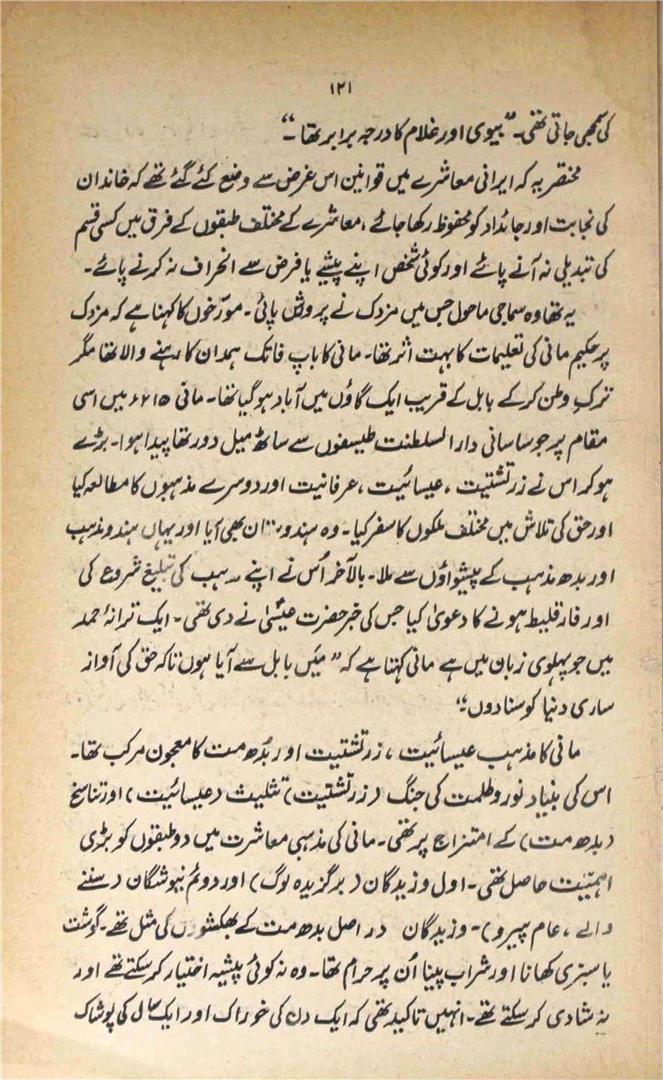 ۱۲۱
کی سمجھی جاتی تھی۔ "بیوی اور غلام کا درجہ برابر تھا۔"
مختصر یہ کہ ایرانی معاشرے میں قوانین اس غرض سے وضع کئے گئے تھے کہ خاندان
کی نجابت اور جائداد کو محفوظ رکھا جائے، معاشرے کے مختلف طبقوں کے فرق میں کسی قسم
کی تبدیلی نہ آنے پائے اور کوئی شخص اپنے پیشے یا فرض سے انحراف نہ کرنے پائے۔
یہ تھا وہ سماجی ماحول جس میں مزدک نے پرورش پائی۔ مورّخوں کا کہنا ہے کہ مزدک
پر حکیم مانی کی تعلیمات کا بہت اثر تھا۔ مانی کا باپ فاتک ہمدان کا رہنے والا تھا مگر
ترکِ وطن کر کے بابل کے قریب ایک گاؤں میں آباد ہو گیا تھا۔ مانی ۲۱۵ء میں اسی
مقام پر جو ساسانی دارالسلطنت طیسفون سے ساٹھ میل دور تھا پیدا ہوا۔ بڑے
ہو کر اس نے زرتشتیت، عیسائیت، عرفانیت اور دوسرے مذہبوں کا مطالعہ کیا
اور حق کی تلاش میں مختلف ملکوں کا سفر کیا۔ وہ ہندوستان بھی آیا اور یہاں ہندو مذہب
اور بدھ مذہب کے پیشواؤں سے ملا۔ بالآخر اُس نے اپنے مذہب کی تبلیغ شروع کی
اور فارقلیط ہونے کا دعویٰ کیا جس کی خبر حضرت عیسٰیؑ نے دی تھی۔ ایک ترانۂ حمد
میں جو پہلوی زبان میں ہے مانی کہتا ہے کہ "میں بابل سے آیا ہوں تاکہ حق کی آواز
ساری دنیا کو سنا دوں۔"
مانی کا مذہب عیسائیت، زرتشتیت اور بُدھ مت کا معجون مرکب تھا۔
اس کی بنیاد نور و ظلمت کی جنگ (زرتشتیت) تثلیث (عیسائیت) اور تناسخ
(بدھ مت) کے امتزاج پر تھی۔ مانی کی مذہبی معاشرت میں دو طبقوں کو بڑی
اہمیّت حاصل تھی۔ اول وزیدگان (برگزیدہ لوگ) اور دوئم نیوشگان (سننے
والے، عام پیرو)۔ وزیدگان در اصل بدھ مت کے بھکشوؤں کی مثل تھے۔ گوشت
یا سبزی کھانا اور شراب پینا اُن پر حرام تھا۔ وہ نہ کوئی پیشہ اختیار کر سکتے تھے اور
نہ شادی کر سکتے تھے۔ انہیں تاکید تھی کہ ایک دن کی خوراک اور ایک سال کی پوشاک